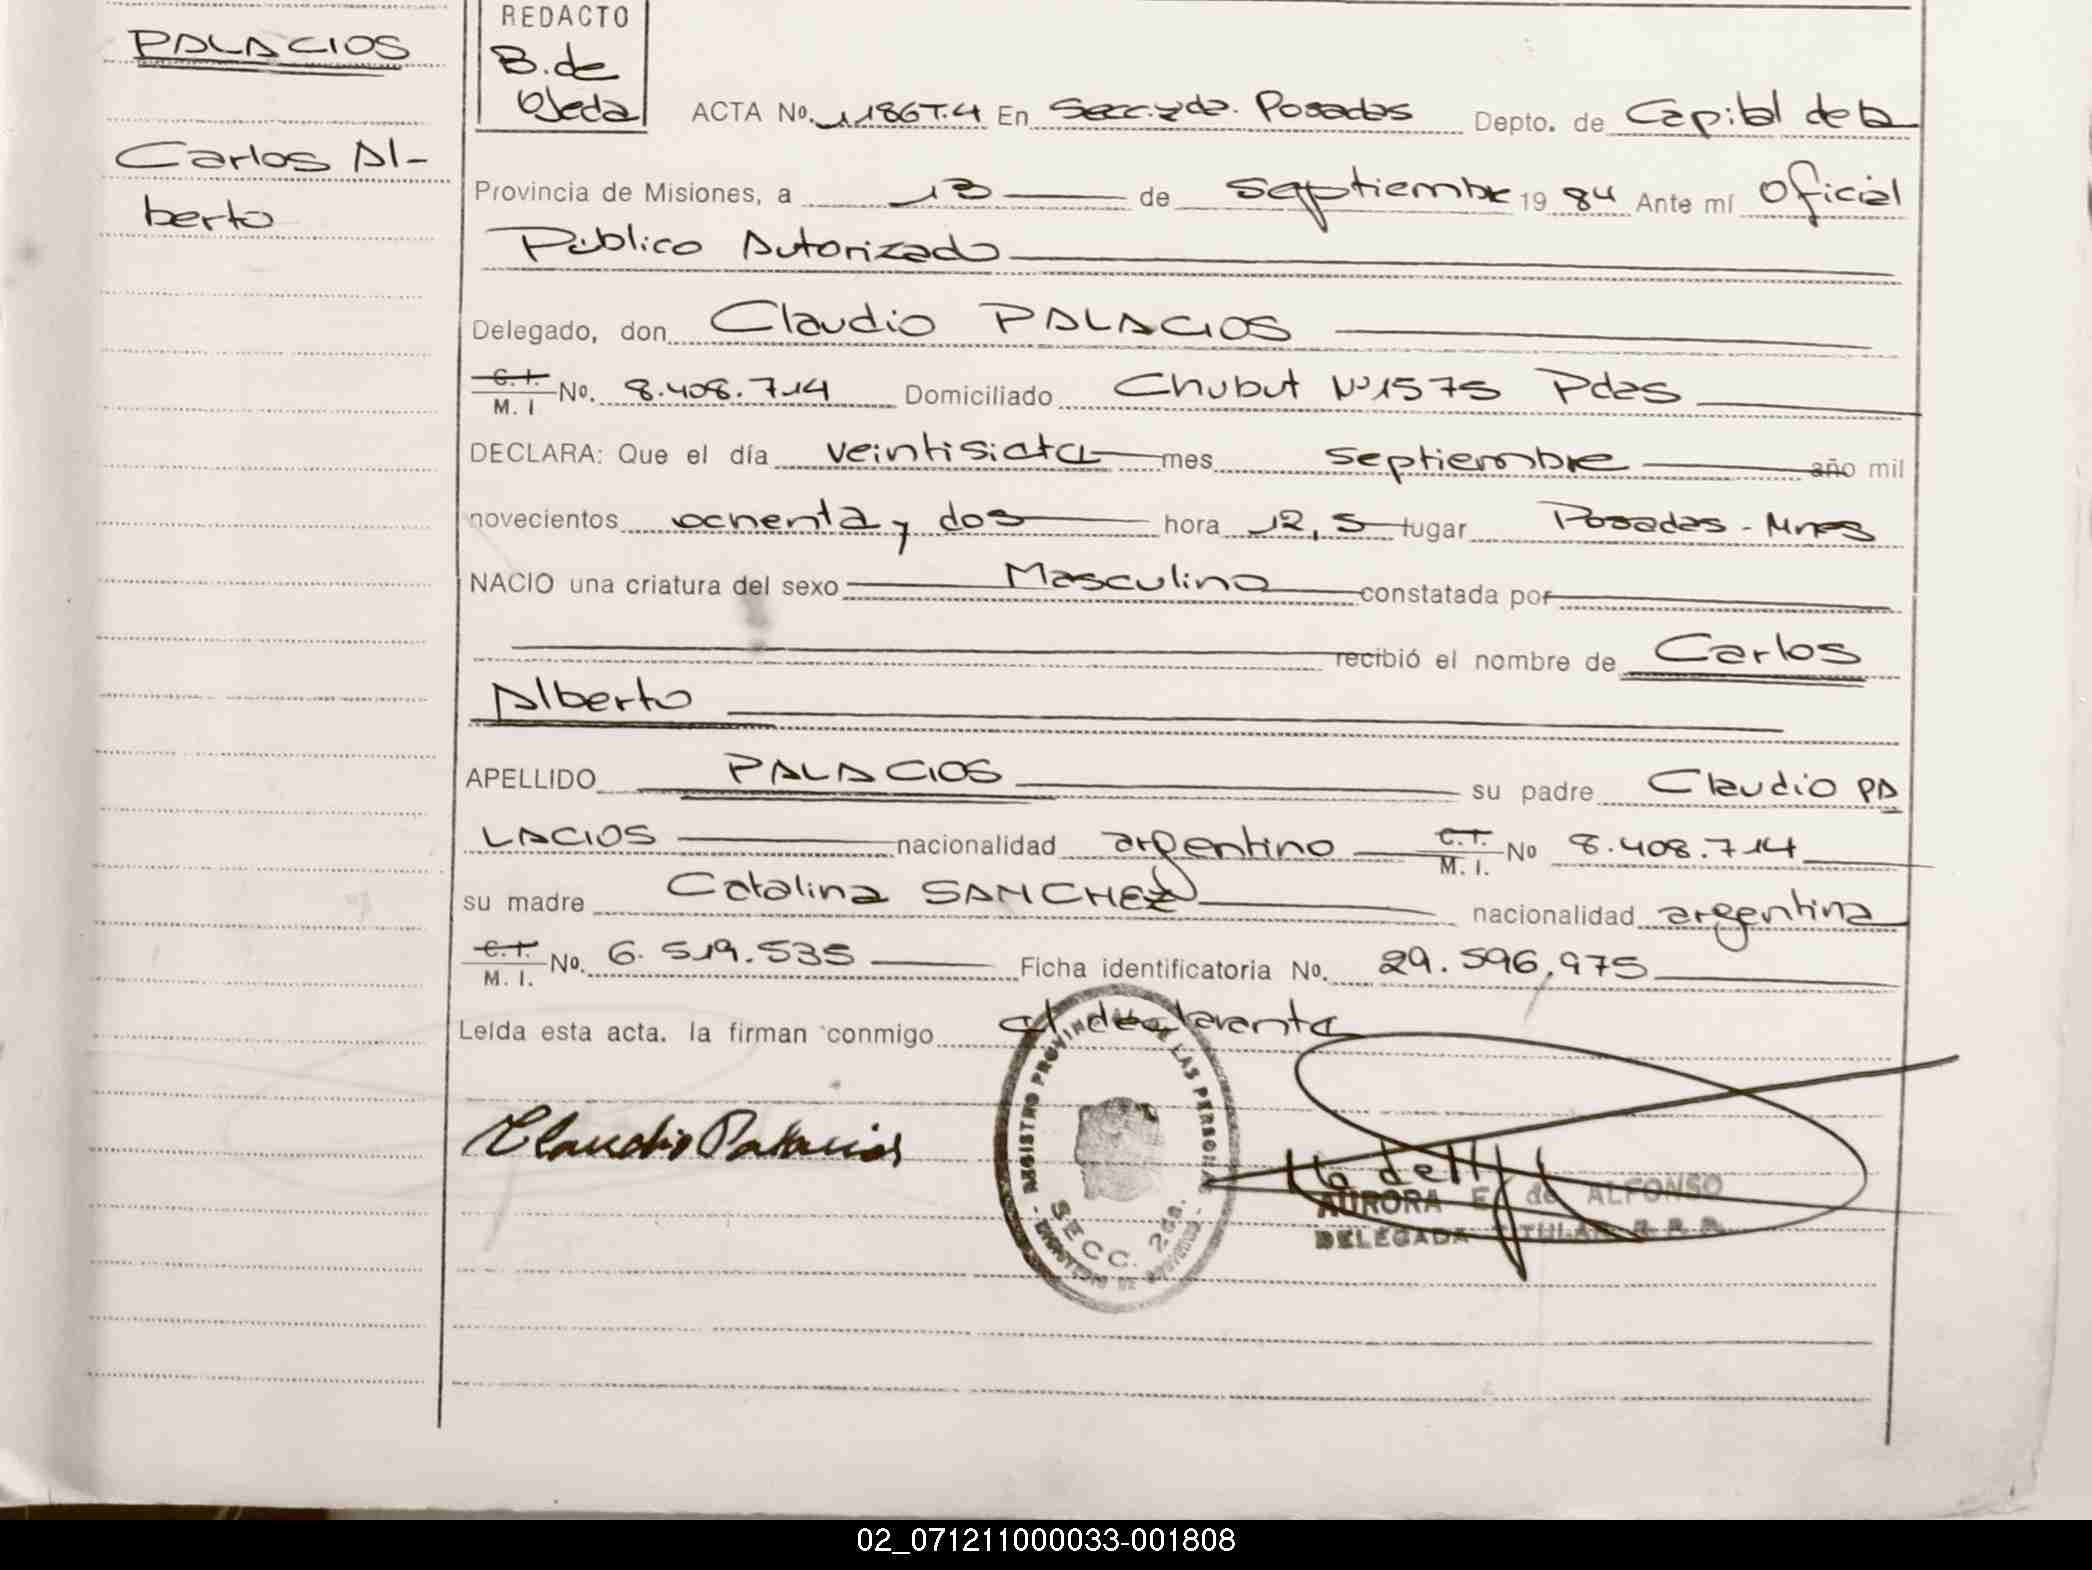 PALACIOS
Carlos Al-
berto
REDACTO
B. de
Ojeda
ACTA No. 1186T.4 En Secc. 2da. Posadas Depto. de Capital de la
Provincia de Misiones, a 13 de septiembre 19 84 Ante mí Oficial
Público Autorizado
Delegado, don Claudio PALACIOS
C. I. No. 8.408.714 Domiciliado Chubut Nº1575 Pdas
M. I
DECLARA: Que el día veintisiete mes septiembre año mil
novecientos ochenta y dos hora 12,5 lugar Posadas - Mnes
NACIO una criatura del sexo Masculino constatada por
recibió el nombre de Carlos
Alberto
APELLIDO PALACIOS su padre Claudio PA
LACIOS nacionalidad argentino C.I. No 8.408.714
M. I.
su madre Catalina SANCHEZ nacionalidad argentina
C. I. No. 6.519.535 Ficha identificatoria No. 29.596.975
M. I.
Leída esta acta. la firman conmigo el declarante
Claudio Palacios
REGISTRO PROVINCIAL DE LAS PERSONAS
SECC. 2da.
AURORA E. de ALFONSO
DELEGADA TITULAR
02_071211000033-001808